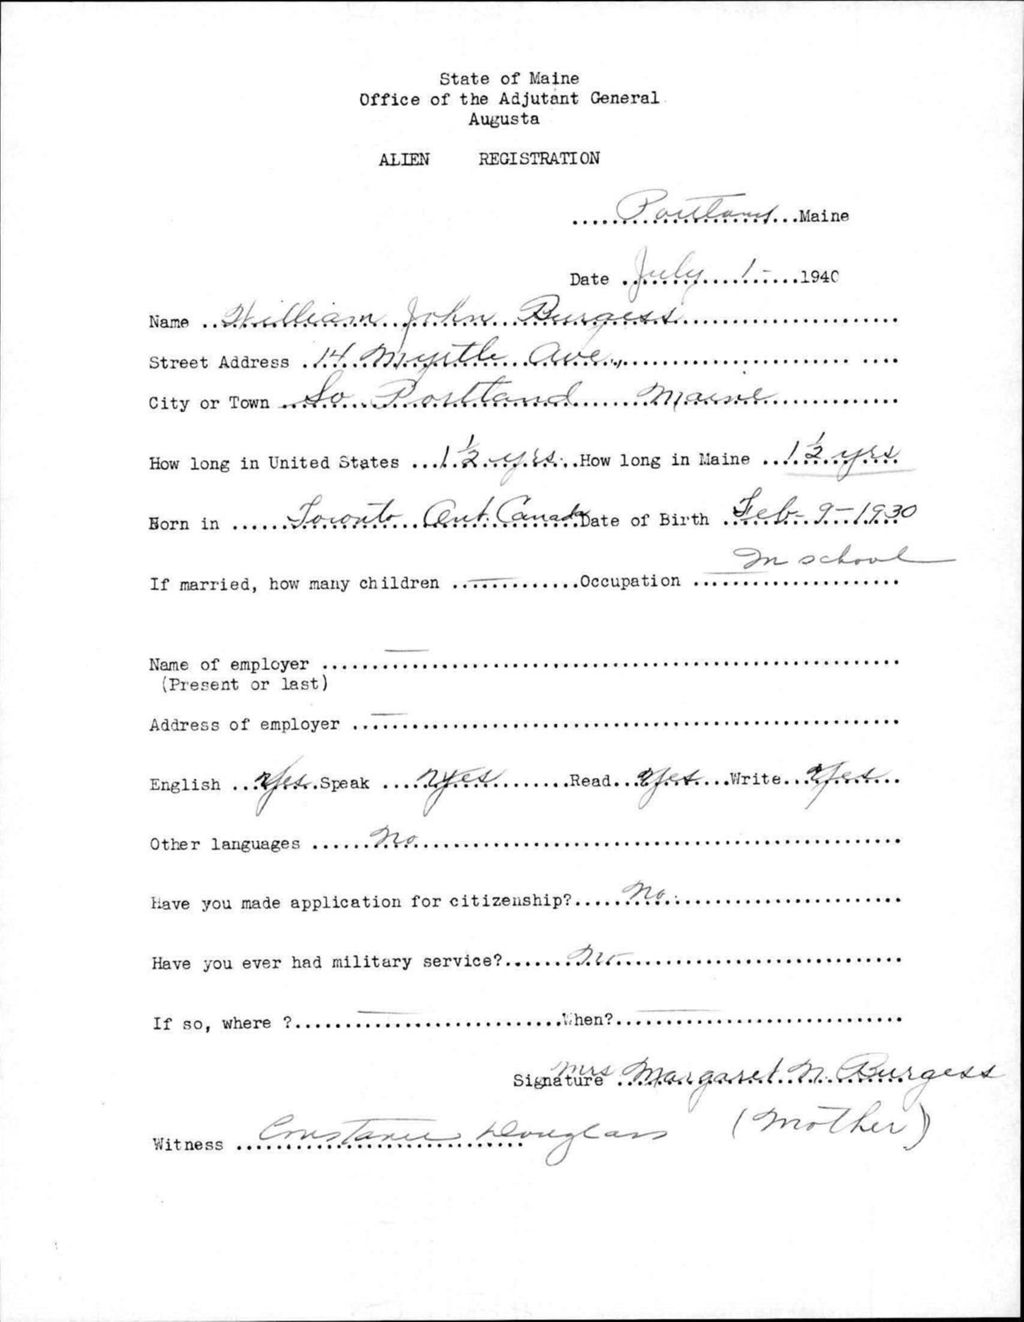 State of Maine
Office of the Adjutant General
Augusta
ALIEN REGISTRATION
.....Portland...Maine
Date ..July...1-...1940
Name ..William..John..Burgess......................
Street Address .14.Myrtle..Ave.,..............................
City or Town ..So...Portland......Maine..............
How long in United States ...1 1/2.yrs...How long in Maine ..1 1/2 yrs
Born in .....Toronto...Ont. Canada Date of Birth .Feb-9-1930
If married, how many children ..—..........Occupation ....In school
Name of employer ......—......................................
(Present or last)
Address of employer ..—......................................
English ..Yes..Speak ....Yes........Read..Yes...Write..Yes..
Other languages ......No......................................
Have you made application for citizenship?.....No......................
Have you ever had military service?......No......................
If so, where ?.....—...................When?..—......................
Signature Mrs Margaret N. Burgess
Witness ..Constance Douglass (Mother)